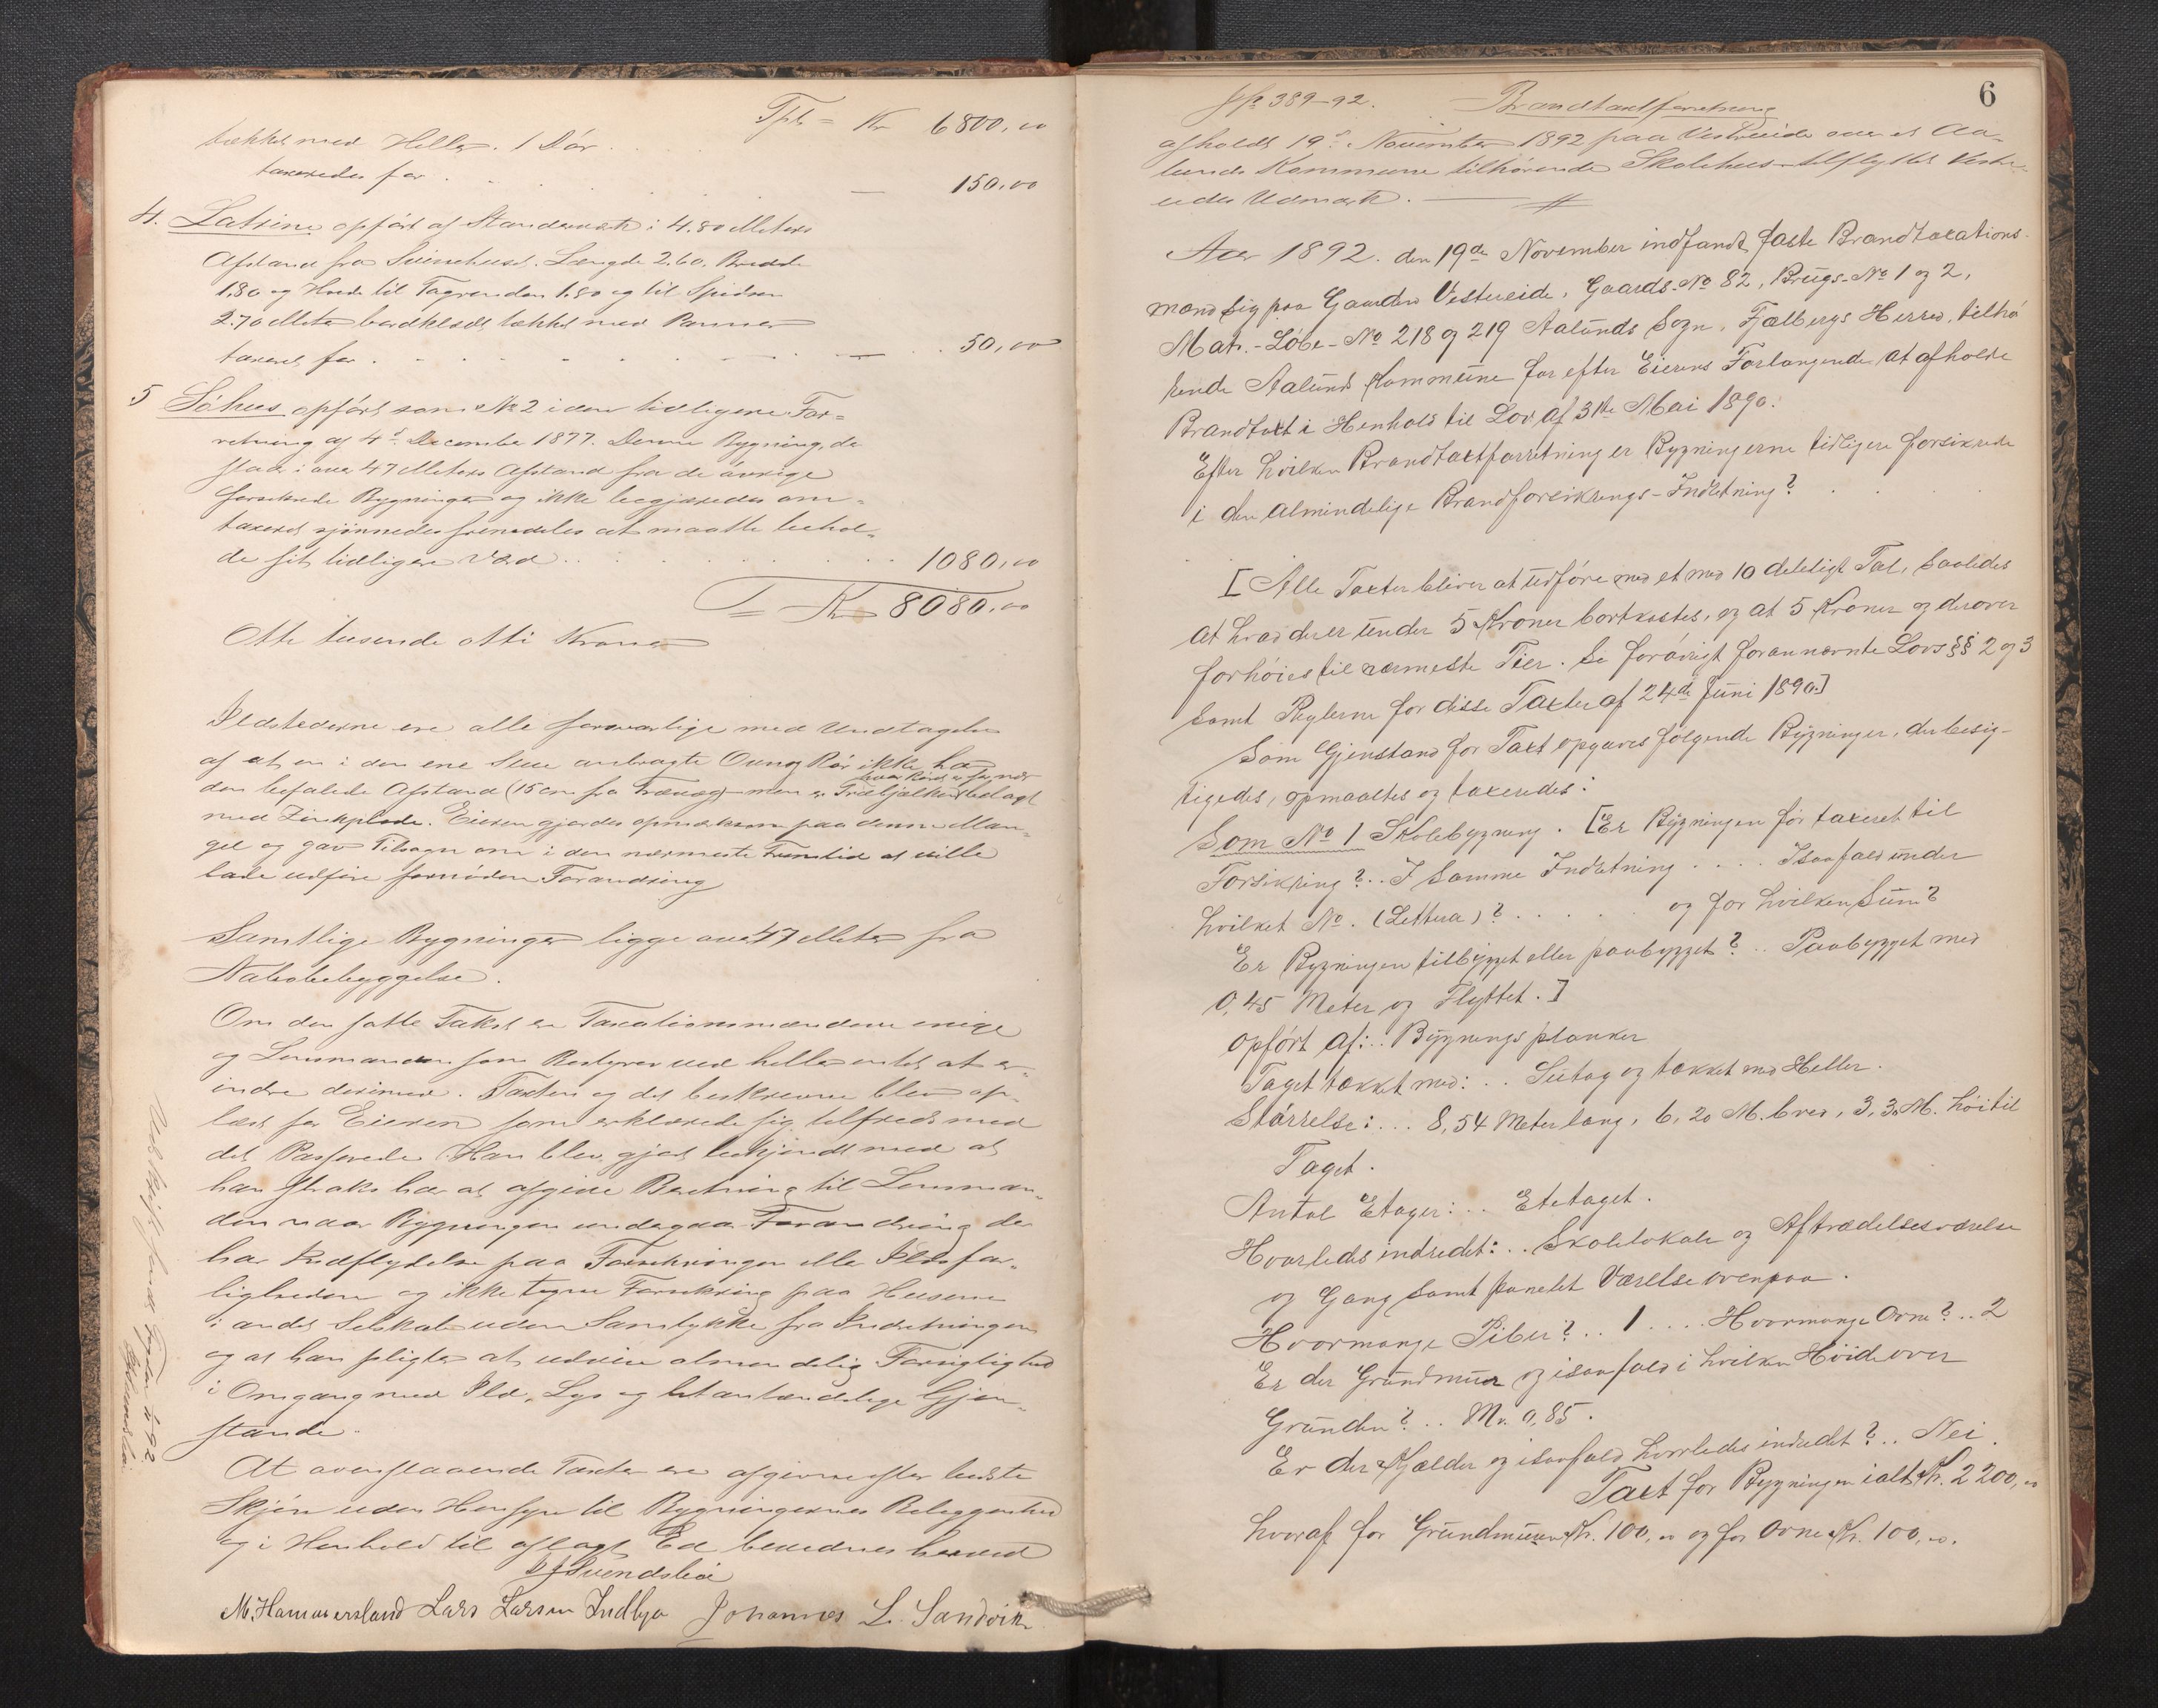 Tpt = Kr 6800,00
tækket med Heller. 1 Dør
taxeredes for . . . — 150,00
4. Latrine opført af Standværk i 4.80 Meters
Afstand fra Svinehuset. Længde 2.60. Bredde
1.80 og Høide til Tagrenden 1.80 og til Spidsen
2.70 Meter bordklædt tækket med Panner
taxeret for . . . — 50,00
5 Søhus opført som No 2 i den tidligere For=
retning af 4de December 1877. Denne Bygning, der
staar i over 47 Meters Afstand fra de øvrige
forsikrede Bygninger og ikke begjæredes om-
taxeret skjønnedes fremdeles at maatte behol-
de sit tidligere Værd . . . 1080,00
= Kr 8080,00
Otte tusende otti Kroner
Ildstederne ere alle forsvarlige med Undtagelse
af at en i den ene Stue anbragte Ovns Rør ikke har
den befalede Afstand (15 cm fra Trævæg) men er Træbjælken hvor Røret er for nær belagt
med Zinkplade. Eieren gjordes opmærksom paa denne Man-
gel og gav Tilsagn om i den nærmeste Fremtid at ville
lade udføre fornøden Forandring
Samtlige Bygninger ligge over 47 Meter fra
Nabobebyggelse.
Om den satte Takst er Taxationsmændene enige
og Lensmanden som Bestyrer ved heller intet at er-
indre derimod. Taxten og det beskrevne blev op-
læst for Eieren som erklærede sig tilfreds med
det Passerede. Han blev gjort bekjendt med at
han straks har at afgive Beretning til Lensman-
den naar Bygningen undergaar Forandring der
har Indflydelse paa Forsikringen eller Ildsfar-
ligheden og ikke tegne Forsikring paa Husene
i andet Selskab uden Samtykke fra Indretningen
og at han pligter at udvise almindelig Forsigtighed
i Omgang med Ild, Lys og let antændelige Gjen-
stande.
At ovenstaaende Taxter ere afgivne efter bedste
Skjøn uden Hensyn til Bygningernes Beliggenhed
og i Henhold til aflagt Ed bevidnes herved
Svendsbøe
M. Hammersland Lars Larsen Indbjo Johannes L. Sandvik
6
389-92. Brandtaxtforretning
afholdt 19de November 1892 paa Vestreide over et Aa-
lunds Kommune tilhørende Skolehus tilflyttet Vestre-
eides Udmark. —
Aar 1892. den 19de November indfandt faste Brandtaxations-
mænd sig paa Gaarden Vestreide, Gaards-No 82, Brugs-No 1 og 2,
Matr.-Løbe-No 218 og 219 Aalunds Sogn, Fjælbergs Herred, tilhø
rende Aalunds Kommune for efter Eierens Forlangende at afholde
Brandtaxt i Henhold til Lov af 31te Mai 1890.
Efter hvilken Brandtaxtforretning er Bygningerne tidligere forsikrede
i den almindelige Brandforsikrings-Indretning? . . .
[Alle Taxter bliver at udføre med et med 10 deleligt Tal, saaledes
at hvad der er under 5 Kroner bortkastes, og at 5 Kroner og derover
forhøies til nærmeste Tier. Se forøvrigt forannævnte Lovs §§ 2 og 3
samt Reglerne for disse Taxter af 24de Juni 1890.]
Som Gjenstand for Taxt opgaves følgende Bygninger, der besig-
tigedes, opmaaltes og taxeredes:
Som No 1 Skolebygning. [Er Bygningen før taxeret til
Forsikring? . . I samme Indretning . . . . Isaafald under
hvilket No. (Lettera)? . . . . . og for hvilken Sum?
Er Bygningen tilbygget eller paabygget? . . Paabygget med
0,45 Meter og Flyttet.]
opført af: . . Bygnings planker
Taget tækket med: . . Sutag og tækket med Heller.
Størrelse: . . . 8,54 Meter lang, 6,20 M. bred, 3,30 M. høi til
Taget.
Antal Etager: . . Etetaget.
Hvorledes indredet: . . Skolelokale og Aftrædelsesværelse
og Gang samt panelet Værelse ovenpaa.
Hvormange Piber? . . 1 . . . . Hvormange Ovne? . . 2
Er der Grundmur og isaafald i hvilken Høide over
Grunden? . . Mr. 0,85.
Er der Kjælder og isaafald hvorledes indredet? . . Nei.
Taxt for Bygningen ialt Kr. 2200,00
hvoraf for Grundmuren Kr. 100,00 og for Ovne Kr. 100,00.